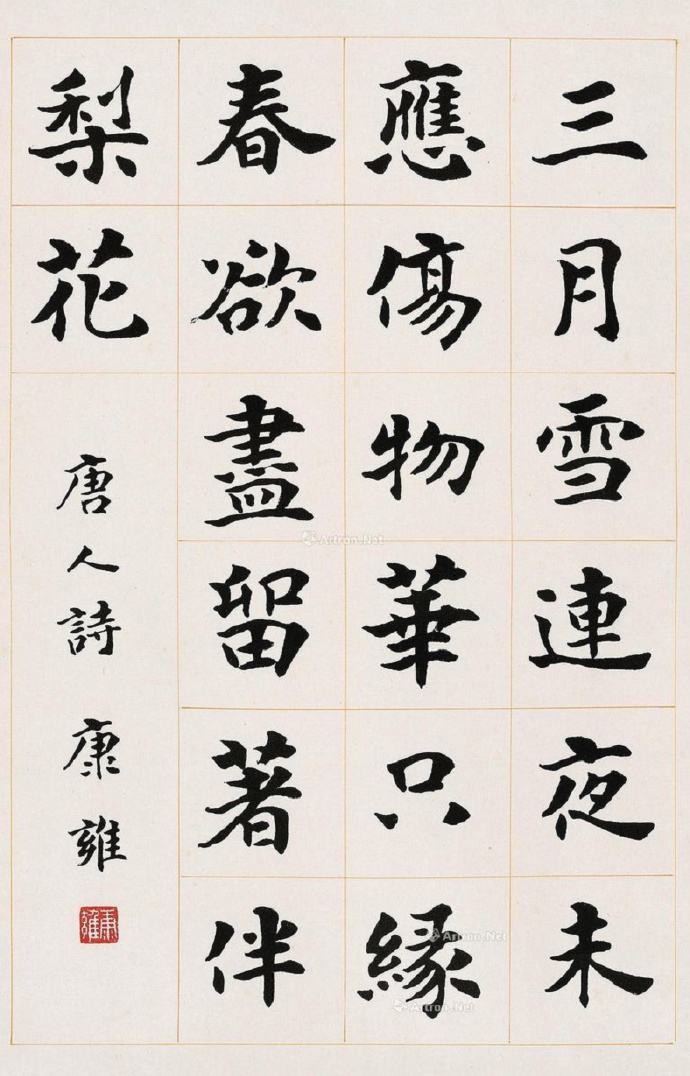 三月雪連夜未
應傷物華只緣
春欲盡留著伴
梨花
唐人詩 康雍
康雍
Artron.Net
Artron.Net
Artron.Net